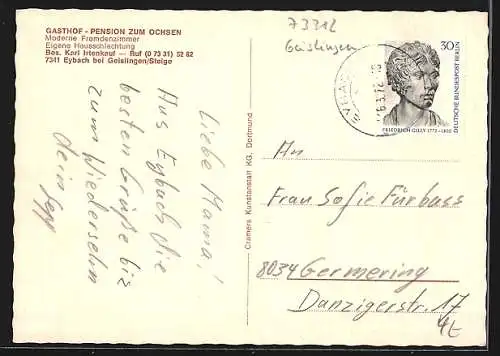 GASTHOF - PENSION ZUM OCHSEN
Moderne Fremdenzimmer
Eigene Hausschlachtung
Bes. Karl Irtenkauf — Ruf (0 73 31) 52 62
7341 Eybach bei Geislingen/Steige
Liebe Mama!
Aus Eybach die
besten Grüße bis
zum Wiedersehn
dein Sepp
Cramers Kunstanstalt KG, Dortmund
7331L
Geislingen
30
DEUTSCHE BUNDESPOST BERLIN
FRIEDRICH GILLY 1772-1800
An
Frau Sofie Fürbass
8034 Germering
Danzigerstr. 17